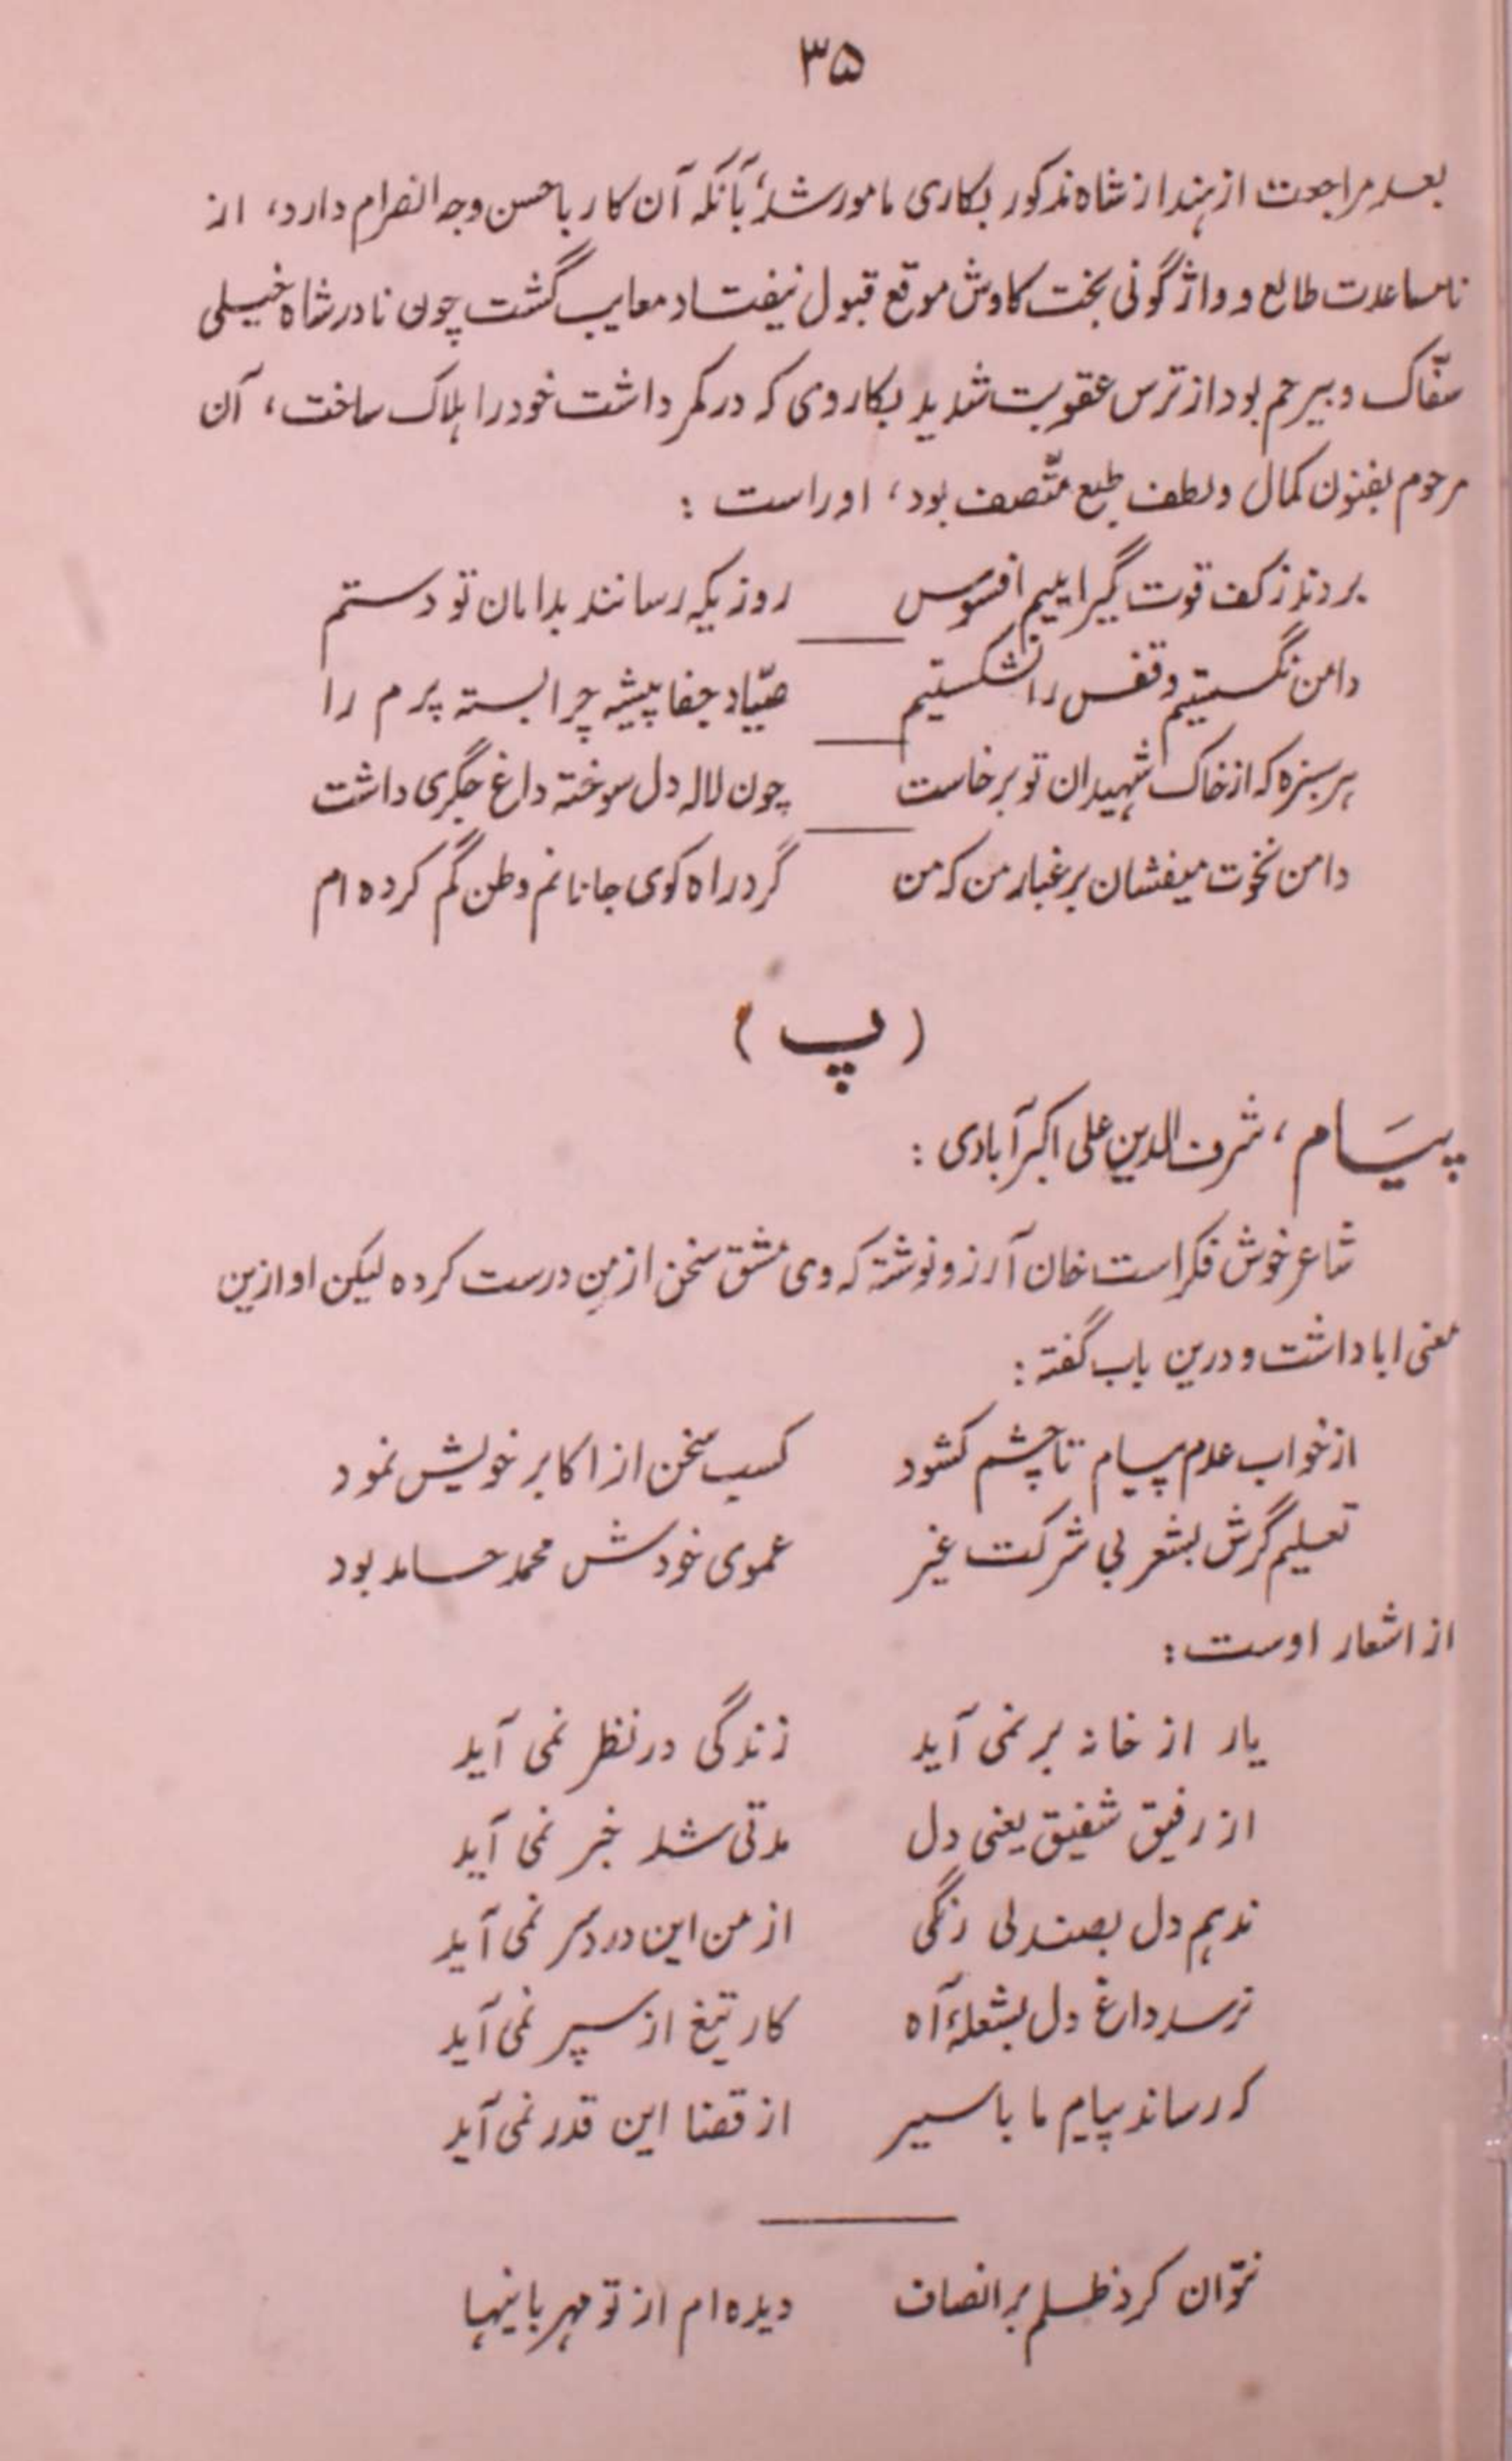 ۳۵
بعد مراجعت از هند از شاه مذکور بکاری مامور شد، بآنکه آن کار باحسن وجه انصرام دارد، از
نامساعدت طالع و واژگونی بخت کاوش موقع قبول نیفتاد معایب گشت چون نادر شاه خیلی
سفّاک و بیرحم بود از ترس عقوبت شدید بکاروی که در کمر داشت خود را هلاک ساخت، آن
مرحوم بفنون کمال و لطف طبع متّصف بود، اوراست :
بردند ز کف قوت گیراییم افسوس روزیکه رسانند بدامان تو دستم
دامن نگسستیم و قفس را نشکستیم صیّاد جفا پیشه چرا بسته پرم را
هر سبزه که از خاک شهیدان تو برخاست چون لاله دل سوخته داغ جگری داشت
دامن نخوت میفشان بر غبار من که من گرد راه کوی جانانم وطن گم کرده ام
(پ)
پیام، شرف الدین علی اکبرآبادی :
شاعر خوش فکر است خان آرزو نوشته که وی مشق سخن از من درست کرده لیکن او ازین
معنی ابا داشت و درین باب گفته :
از خواب عدم پیام تا چشم کشود کسب سخن از اکابر خویش نمود
تعلیم گرش بشعر بی شرکت غیر عموی خودش محمد حامد بود
از اشعار اوست :
یار از خانه بر نمی آید زندگی در نظر نمی آید
از رفیق شفیق یعنی دل مدتی شد خبر نمی آید
ندهم دل بصندلی رنگی از من این دردسر نمی آید
نرسد داغ دل بشعلۀ آه کار تیغ از سپر نمی آید
که رساند پیام ما باسیر از قضا این قدر نمی آید
نتوان کرد ظلم بر انصاف دیده ام از تو مهربانیها